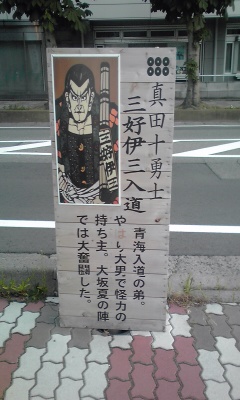 真田十勇士
三好伊三入道
青海入道の弟。
や 大男で怪力の
持ち主。大坂夏の陣
では大奮闘した。
三好伊三